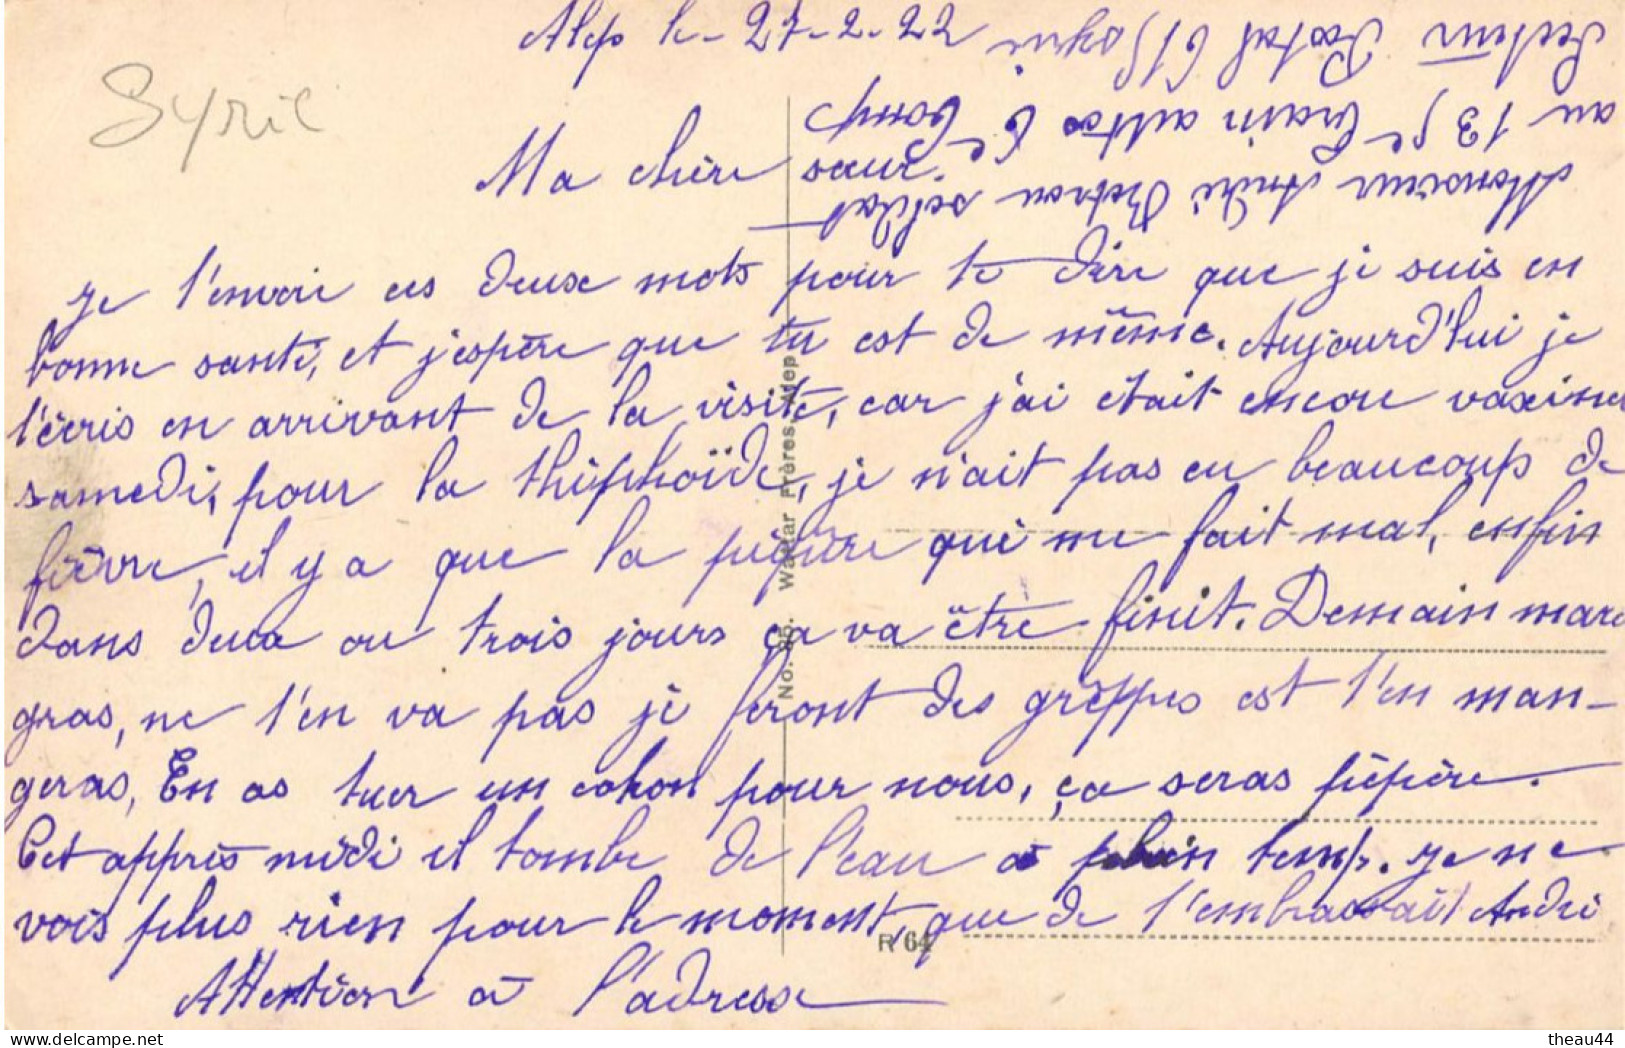 Alep le 27-2-22
Syrie
Ma chère sœur.
Monsieur André Rotron soldat
au 13 5e train autos 6e Comp
Secteur Postal 615 Syrie
Je t'envoie ces deux mots pour te dire que je suis en
bonne santé, et j'espère que tu est de même. Aujourd'hui je
t'écris en arrivant de la visite, car j'ai était encore vaxiner
samedi, pour la thiphoïde, je n'ait pas eu beaucoup de
fièvre, il y a que la piqûre qui me fait mal, enfin
dans deux ou trois jours ça va être finit. Demain mardi
gras, ne t'en va pas je feront des greppes est t'en man-
geras, En as tuer un cohon pour nous, ça seras pépère.
Cet apprès midi il tombe de l'eau à plein temps. Je ne
vois plus rien pour le moment, que de t'embrassait André
Attention à l'adresse
No. 85. Wattar Frères, Alep
R 64
theau44